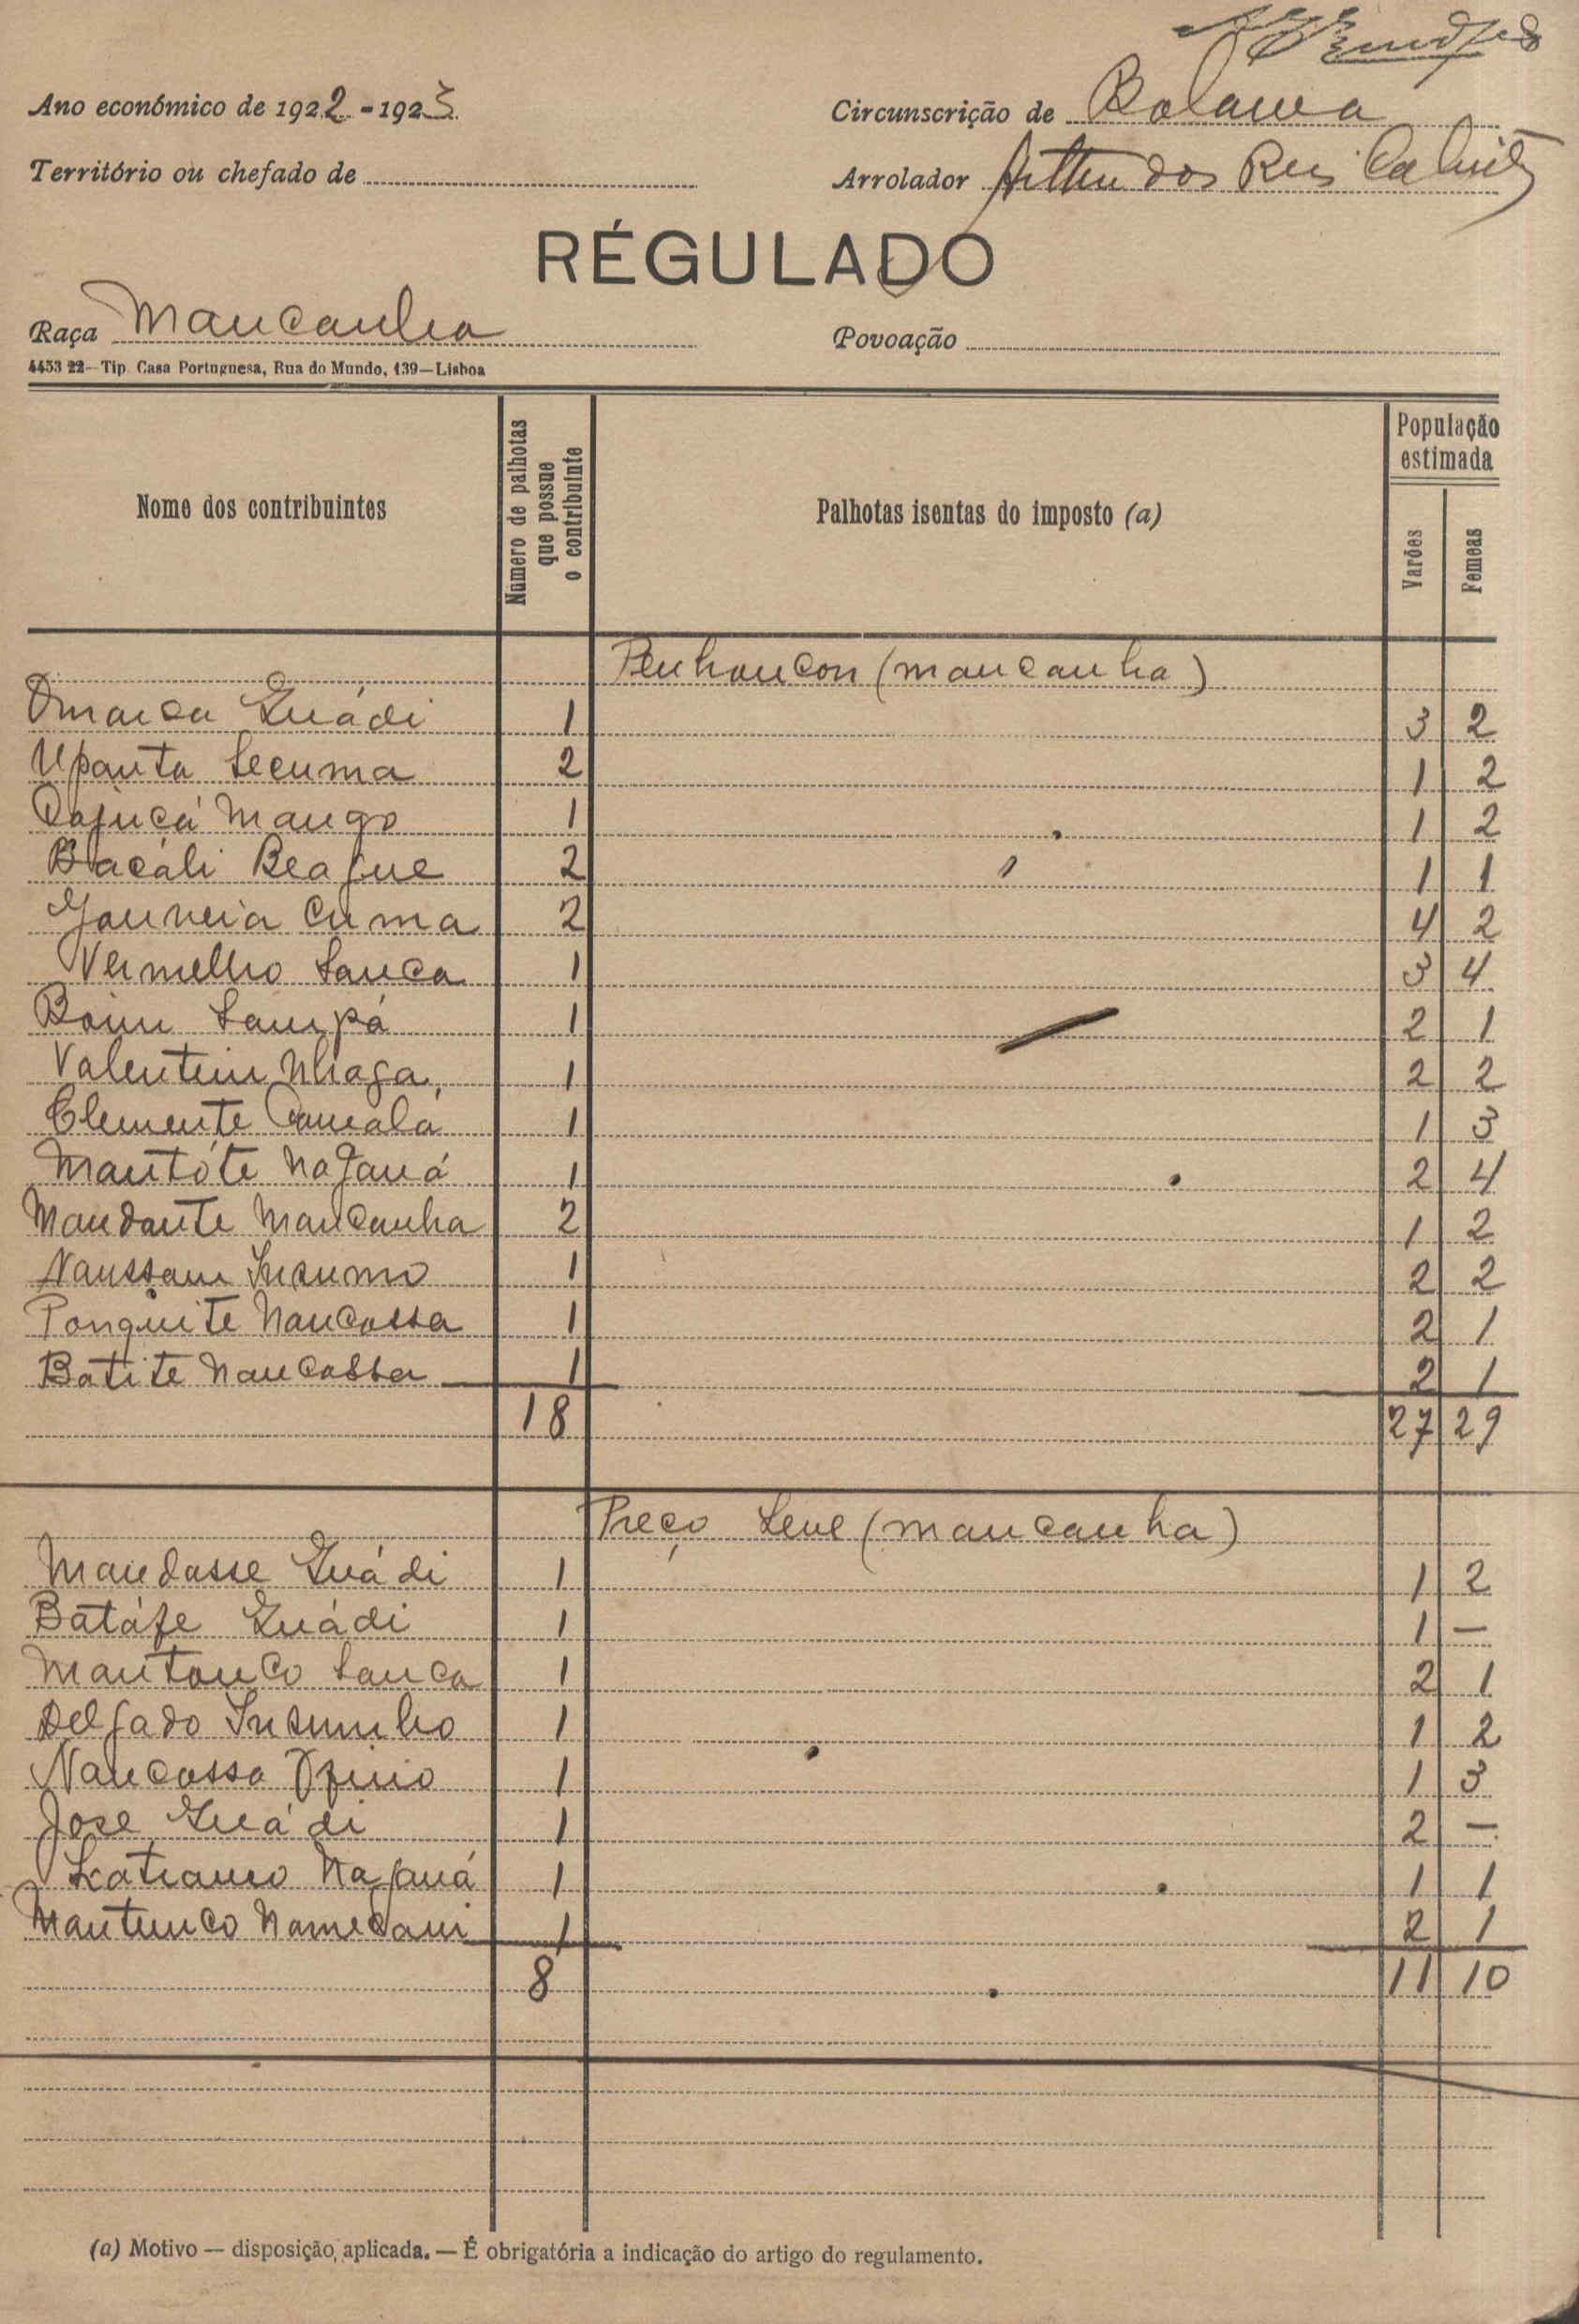 Ano económico de 1922-1923
Circunscrição de Bolama
Território ou chefado de
Arrolador dos Reis
RÉGULADO
Raça Mancanha
Povoação
4453 22—Tip. Casa Portuguesa, Rua do Mundo, 139—Lisboa
Nome dos contribuintes
Número de palhotas que possue o contribuinte
Palhotas isentas do imposto (a)
População estimada
Varões
Femeas
Penhancon (mancanha)
Guádi 1 3 2
Upanta Secuma 2 1 2
Cajucá Mango 1 1 2
Bacáli Beague 2 1 1
Cuma 2 4 2
Vermelho Sanca 1 3 4
Boim Sampá 1 2 1
Valentim Nhaga 1 2 2
Clemente 1 1 3
Mantóte Naganá 1 2 4
Mandante Mancanha 2 1 2
Naussam Insumo 1 2 2
Ponquite Nancassa 1 2 1
Batite Nancassa 1 2 1
18 27 29
Preço Leve (mancanha)
Mandasse Guádi 1 1 2
Batáfe Guádi 1 1 —
Mantanco Sanca 1 2 1
Delgado Insumbo 1 1 2
Nancassa 1 1 3
Jose Guádi 1 2 —
Nagauá 1 1 1
Mantunco 1 2 1
8 11 10
(a) Motivo — disposição, aplicada. — É obrigatória a indicação do artigo do regulamento.